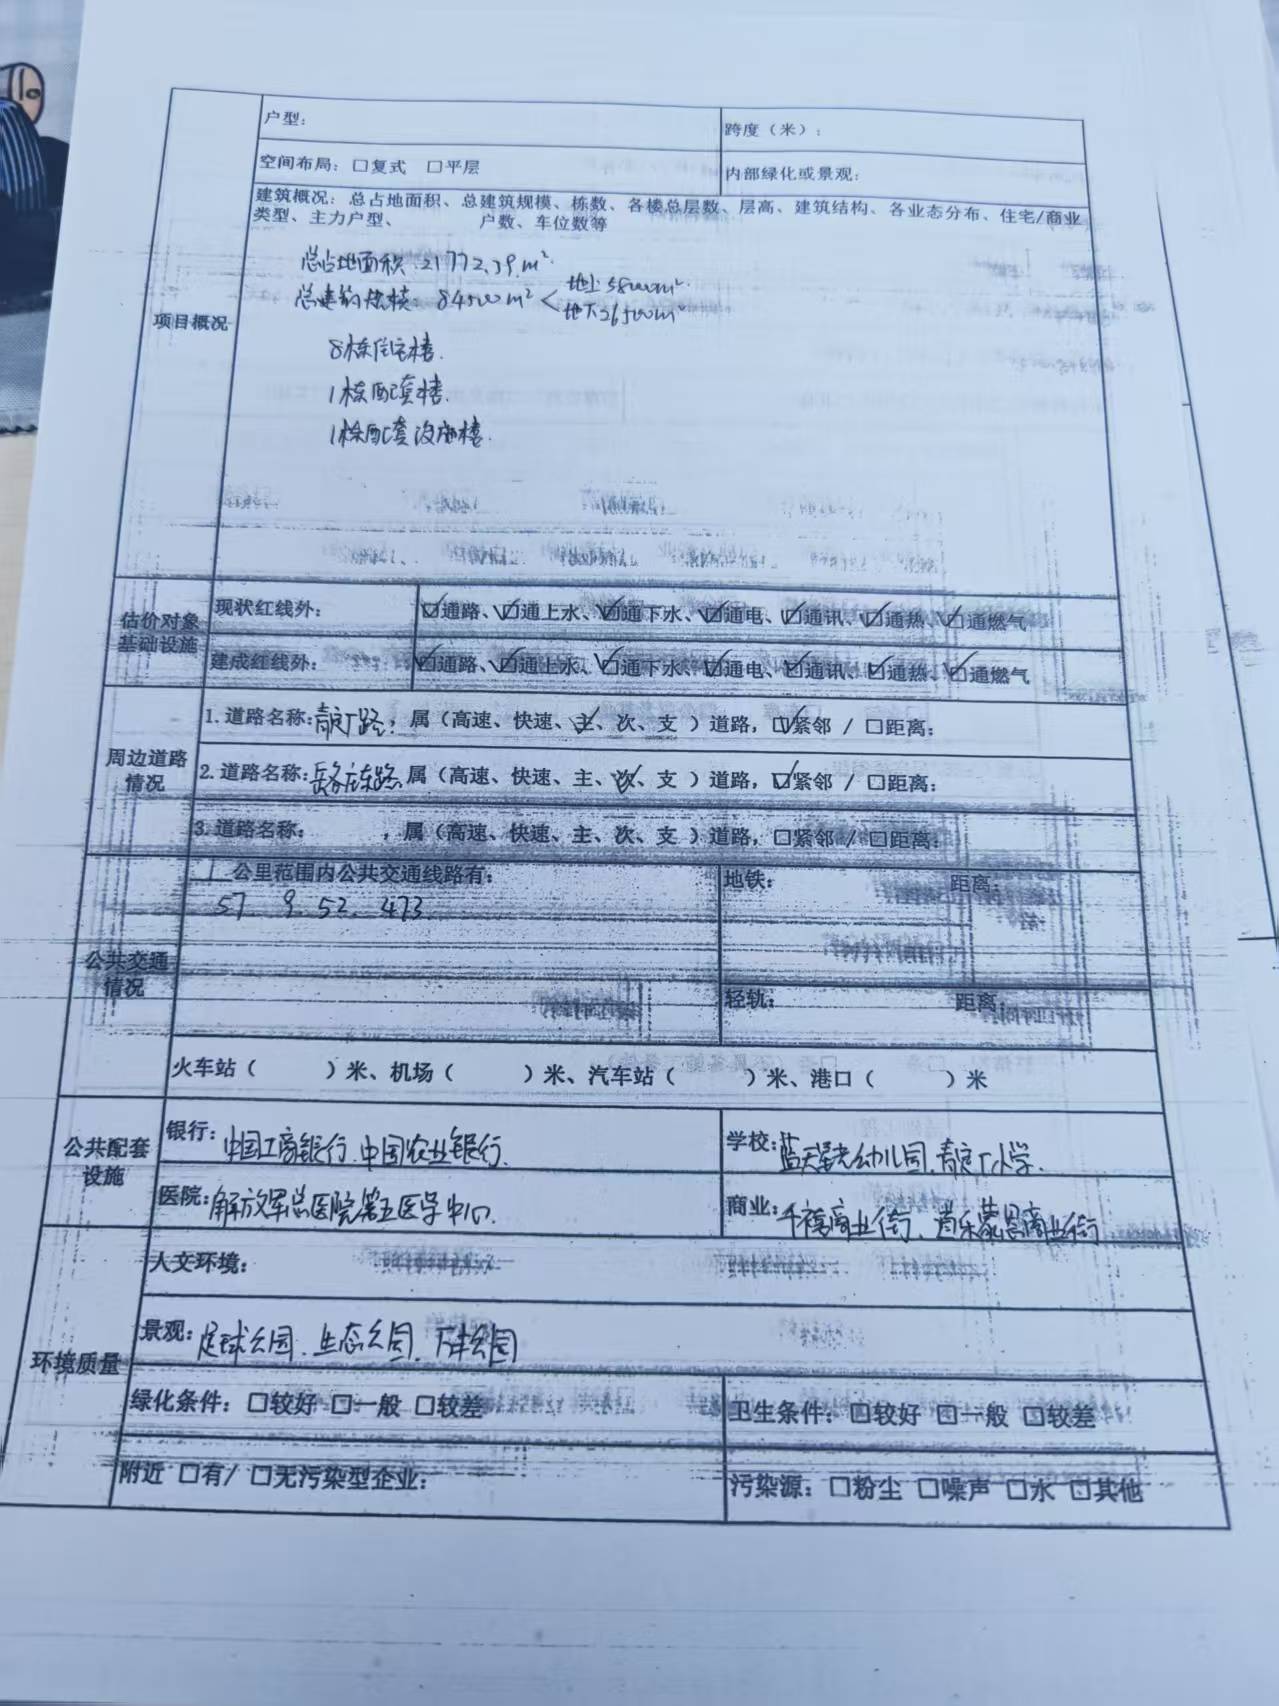 户型：
跨度（米）：
空间布局：□复式 □平层
内部绿化或景观：
项目概况
建筑概况：总占地面积、总建筑规模、栋数、各楼总层数、层高、建筑结构、各业态分布、住宅/商业
类型、主力户型、 户数、车位数等
总占地面积：21772.39m²
总建筑规模：84500m² < 地上58000m²
地下26500m²
8栋住宅楼.
1栋配套楼.
1栋配套设施楼.
估价对象
基础设施
现状红线外：
☑通路、☑通上水、☑通下水、☑通电、☑通讯、☑通热、☑通燃气
建成红线外：
☑通路、☑通上水、☑通下水、☑通电、☑通讯、☑通热、☑通燃气
周边道路
情况
1.道路名称：路，属（高速、快速、主、次、支 ）道路，☑紧邻 / □距离：
2.道路名称：路，属（高速、快速、主、次、支 ）道路，☑紧邻 / □距离：
3.道路名称： ，属（高速、快速、主、次、支 ）道路，□紧邻 / □距离：
公共交通
情况
1 公里范围内公共交通线路有：
57 9. 52. 473
地铁： 距离：
轻轨： 距离：
火车站（ ）米、机场（ ）米、汽车站（ ）米、港口（ ）米
公共配套
设施
银行：中国工商银行.中国农业银行.
学校：蓝天幼儿园.小学.
医院：解放军总医院第五医学中心.
商业：千禧商业街、商业街
环境质量
人文环境：
景观：足球公园.生态公园.公园
绿化条件：□较好 □一般 □较差
卫生条件：□较好 □一般 □较差
附近 □有/ □无污染型企业：
污染源：□粉尘 □噪声 □水 □其他